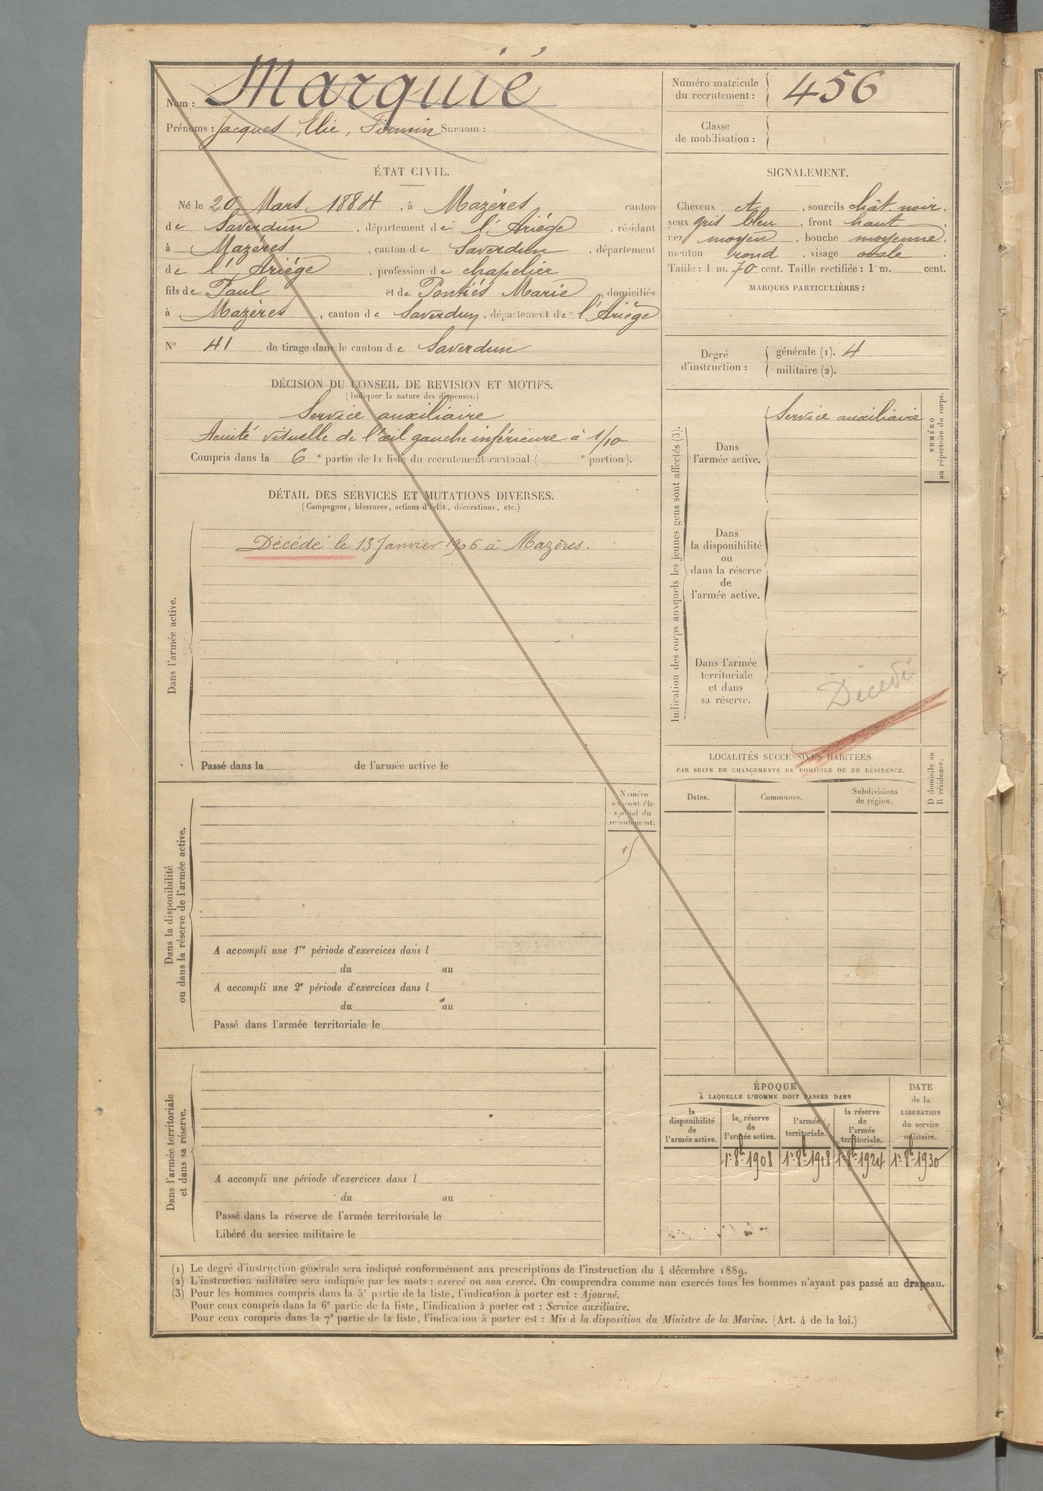 Nom : Marquié
Prénoms : Jacques, Elie, Firmin Surnom :
Numéro matricule du recrutement : 456
Classe de mobilisation :
ÉTAT CIVIL.
Né le 20 Mars 1884, à Mazères canton
de Saverdun, département de l'Ariège, résidant
à Mazères, canton de Saverdun, département
de l'Ariège, profession de chapelier
fils de Paul et de Pontiés Marie, domiciliés
à Mazères, canton de Saverdun, département de l'Ariège
N° 41 de tirage dans le canton de Saverdun
SIGNALEMENT.
Cheveux et, sourcils chât. noir.
yeux gris bleu, front haut
nez moyen, bouche moyenne.
menton rond, visage ovale.
Taille : 1 m. 70 cent. Taille rectifiée : 1 m. cent.
MARQUES PARTICULIÈRES :
Degré d'instruction :
générale (1). 4
militaire (2).
DÉCISION DU CONSEIL DE REVISION ET MOTIFS.
(Indiquer la nature des dispenses.)
Service auxiliaire
Acuité visuelle de l'œil gauche inférieure à 1/10
Compris dans la 6e partie de la liste du recrutement cantonal ( e portion).
DÉTAIL DES SERVICES ET MUTATIONS DIVERSES.
(Campagnes, blessures, actions d'éclat, décorations, etc.)
Dans l'armée active.
Décédé le 13 Janvier 1906 à Mazères.
Passé dans la de l'armée active le
Indication des corps auxquels les jeunes gens sont affectés (3).
NUMÉRO au répertoire du corps.
Dans l'armée active.
Service auxiliaire
Dans la disponibilité ou dans la réserve de l'armée active.
Dans l'armée territoriale et dans sa réserve.
Décédé
LOCALITÉS SUCCESSIVES HABITÉES
PAR SUITE DE CHANGEMENTS DE DOMICILE OU DE RÉSIDENCE.
Dates. Communes. Subdivisions de région. D domicile ou R résidence.
Dans la disponibilité ou dans la réserve de l'armée active.
Numéro au contrôle spécial du recrutement.
A accompli une 1re période d'exercices dans l
du au
A accompli une 2e période d'exercices dans l
du au
Passé dans l'armée territoriale le
Dans l'armée territoriale et dans sa réserve.
A accompli une période d'exercices dans l
du au
Passé dans la réserve de l'armée territoriale le
Libéré du service militaire le
ÉPOQUE
À LAQUELLE L'HOMME DOIT PASSER DANS
la disponibilité de l'armée active.
la réserve de l'armée active.
l'armée territoriale.
la réserve de l'armée territoriale.
DATE de la LIBÉRATION du service militaire.
1r 8b 1908 1r 8b 1918 1r 8b 1924 1r 8b 1930
(1) Le degré d'instruction générale sera indiqué conformément aux prescriptions de l'instruction du 4 décembre 1889.
(2) L'instruction militaire sera indiquée par les mots : exercé ou non exercé. On comprendra comme non exercés tous les hommes n'ayant pas passé au drapeau.
(3) Pour les hommes compris dans la 5e partie de la liste, l'indication à porter est : Ajourné.
Pour ceux compris dans la 6e partie de la liste, l'indication à porter est : Service auxiliaire.
Pour ceux compris dans la 7e partie de la liste, l'indication à porter est : Mis à la disposition du Ministre de la Marine. (Art. 4 de la loi.)